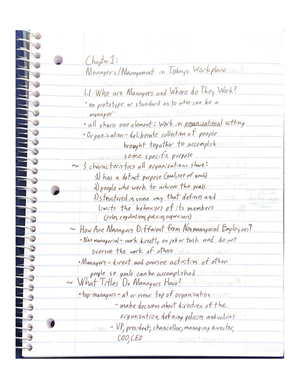 Chapter 1:
Managers/Management in Todays Workplace
1.1 Who are Managers and Where do They Work?
• no prototype or standard as to who can be a
manager
• all share one element: work in organizational setting
• Organization - deliberate collection of people
brought together to accomplish
some specific purpose
~ 3 characteristics all organizations share:
1) has a distinct purpose (goal/set of goals)
2) people who work to achieve the goals
3) structured in some way that defines and
limits the behaviors of its members
(rules, regulations, policies, supervisors)
~ How Are Managers Different From Nonmanagerial Employees?
• Non managerial - work directly on job or task and do not
oversee the work of others
• Managers - direct and oversee activities of other
people so goals can be accomplished
~ What Titles Do Managers Have?
• top managers - at or near top of organization
- make decisions about direction of the
organization, defining policies and values
- VP, president, chancellor, managing director,
COO, CEO